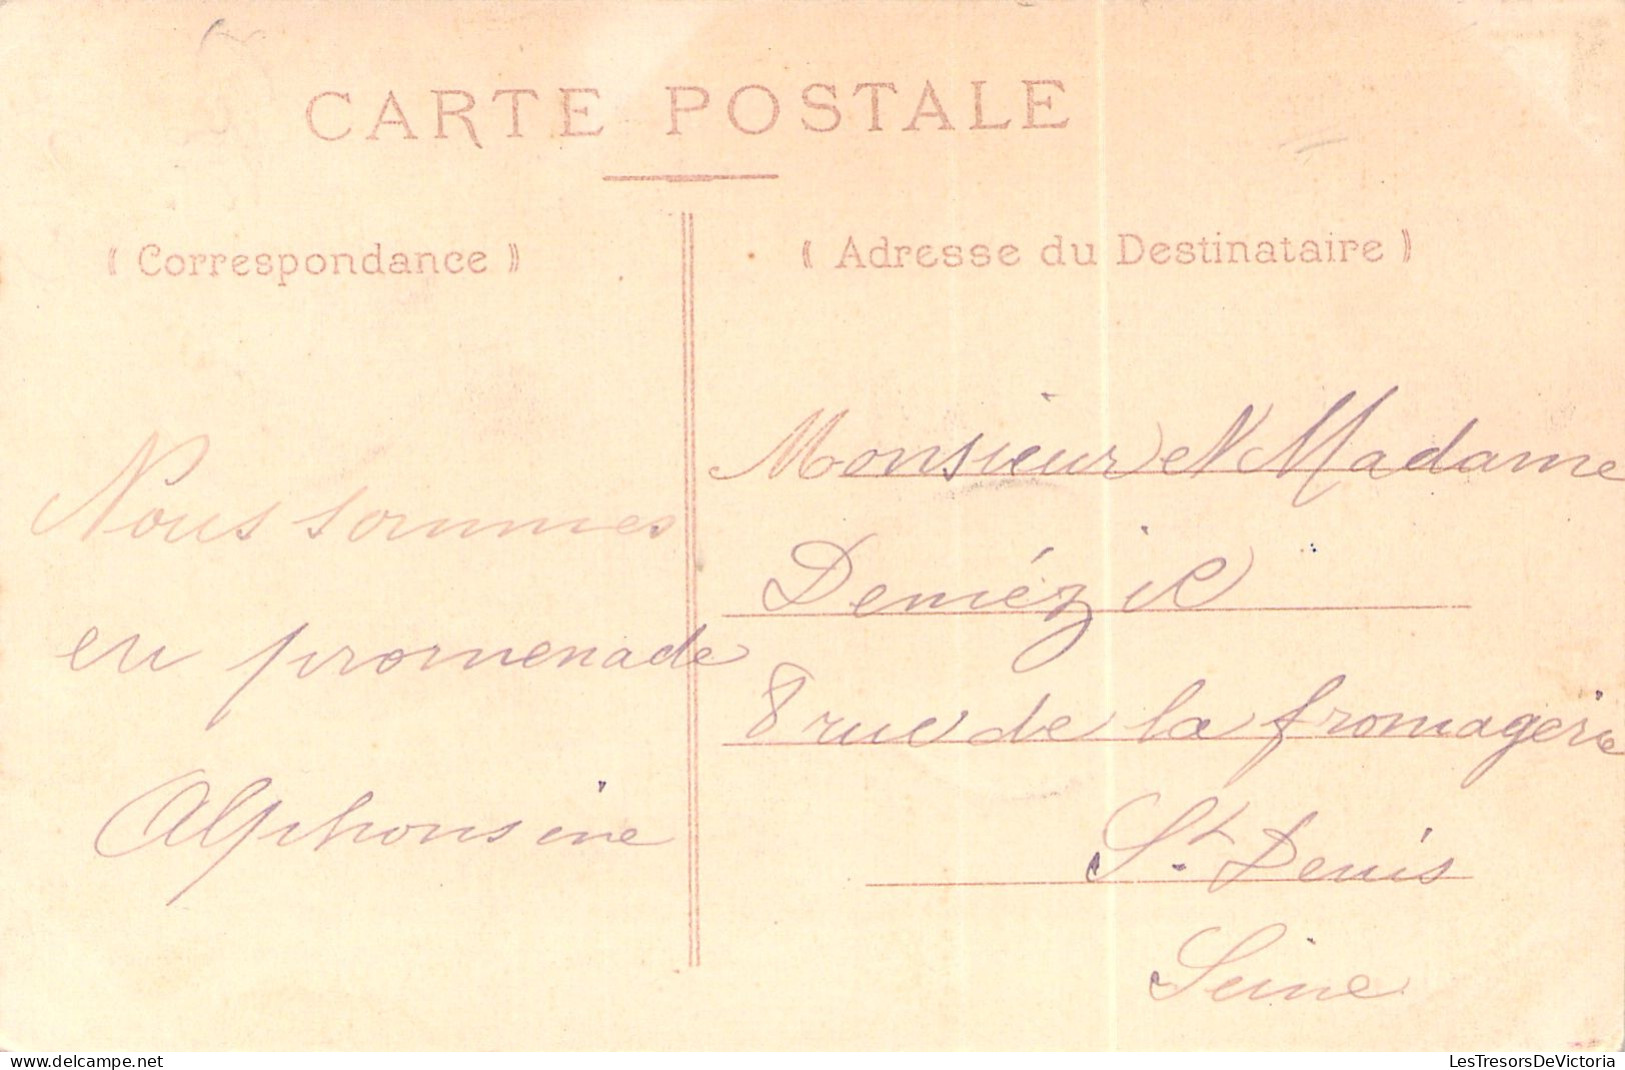 CARTE POSTALE
( Correspondance )
( Adresse du Destinataire )
Nous sommes
en promenade
Alphonsine
Monsieur et Madame
8 rue de la fromagerie
St. Denis
Seine
www.delcampe.net
LesTresorsDeVictoria